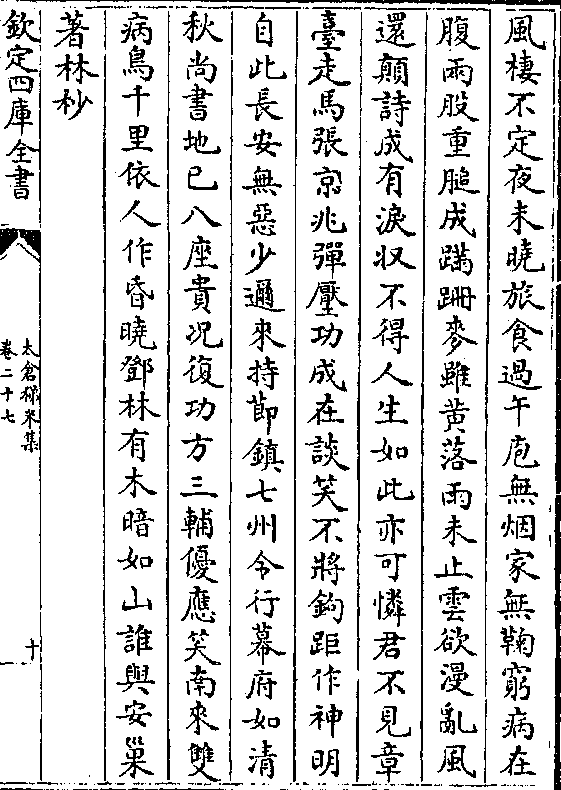 風棲不定夜未曉旅食過午庖無烟家無鞠窮病在
腹雨股重膇成蹣跚麥雖黄落雨未止雲欲漫亂風
還顛詩成有淚収不得人生如此亦可憐君不見章
臺走馬張京兆彈壓功成在談笑不將鉤距作神明
自此長安無惡少邇來持節鎮七州令行幕府如清
秋尚書地已八座貴况復功方三輔優應笑南來雙
病鳥千里依人作昏曉鄧林有木暗如山誰與安巢
著林杪
欽定四庫全書
太倉稊米集
卷二十七
十